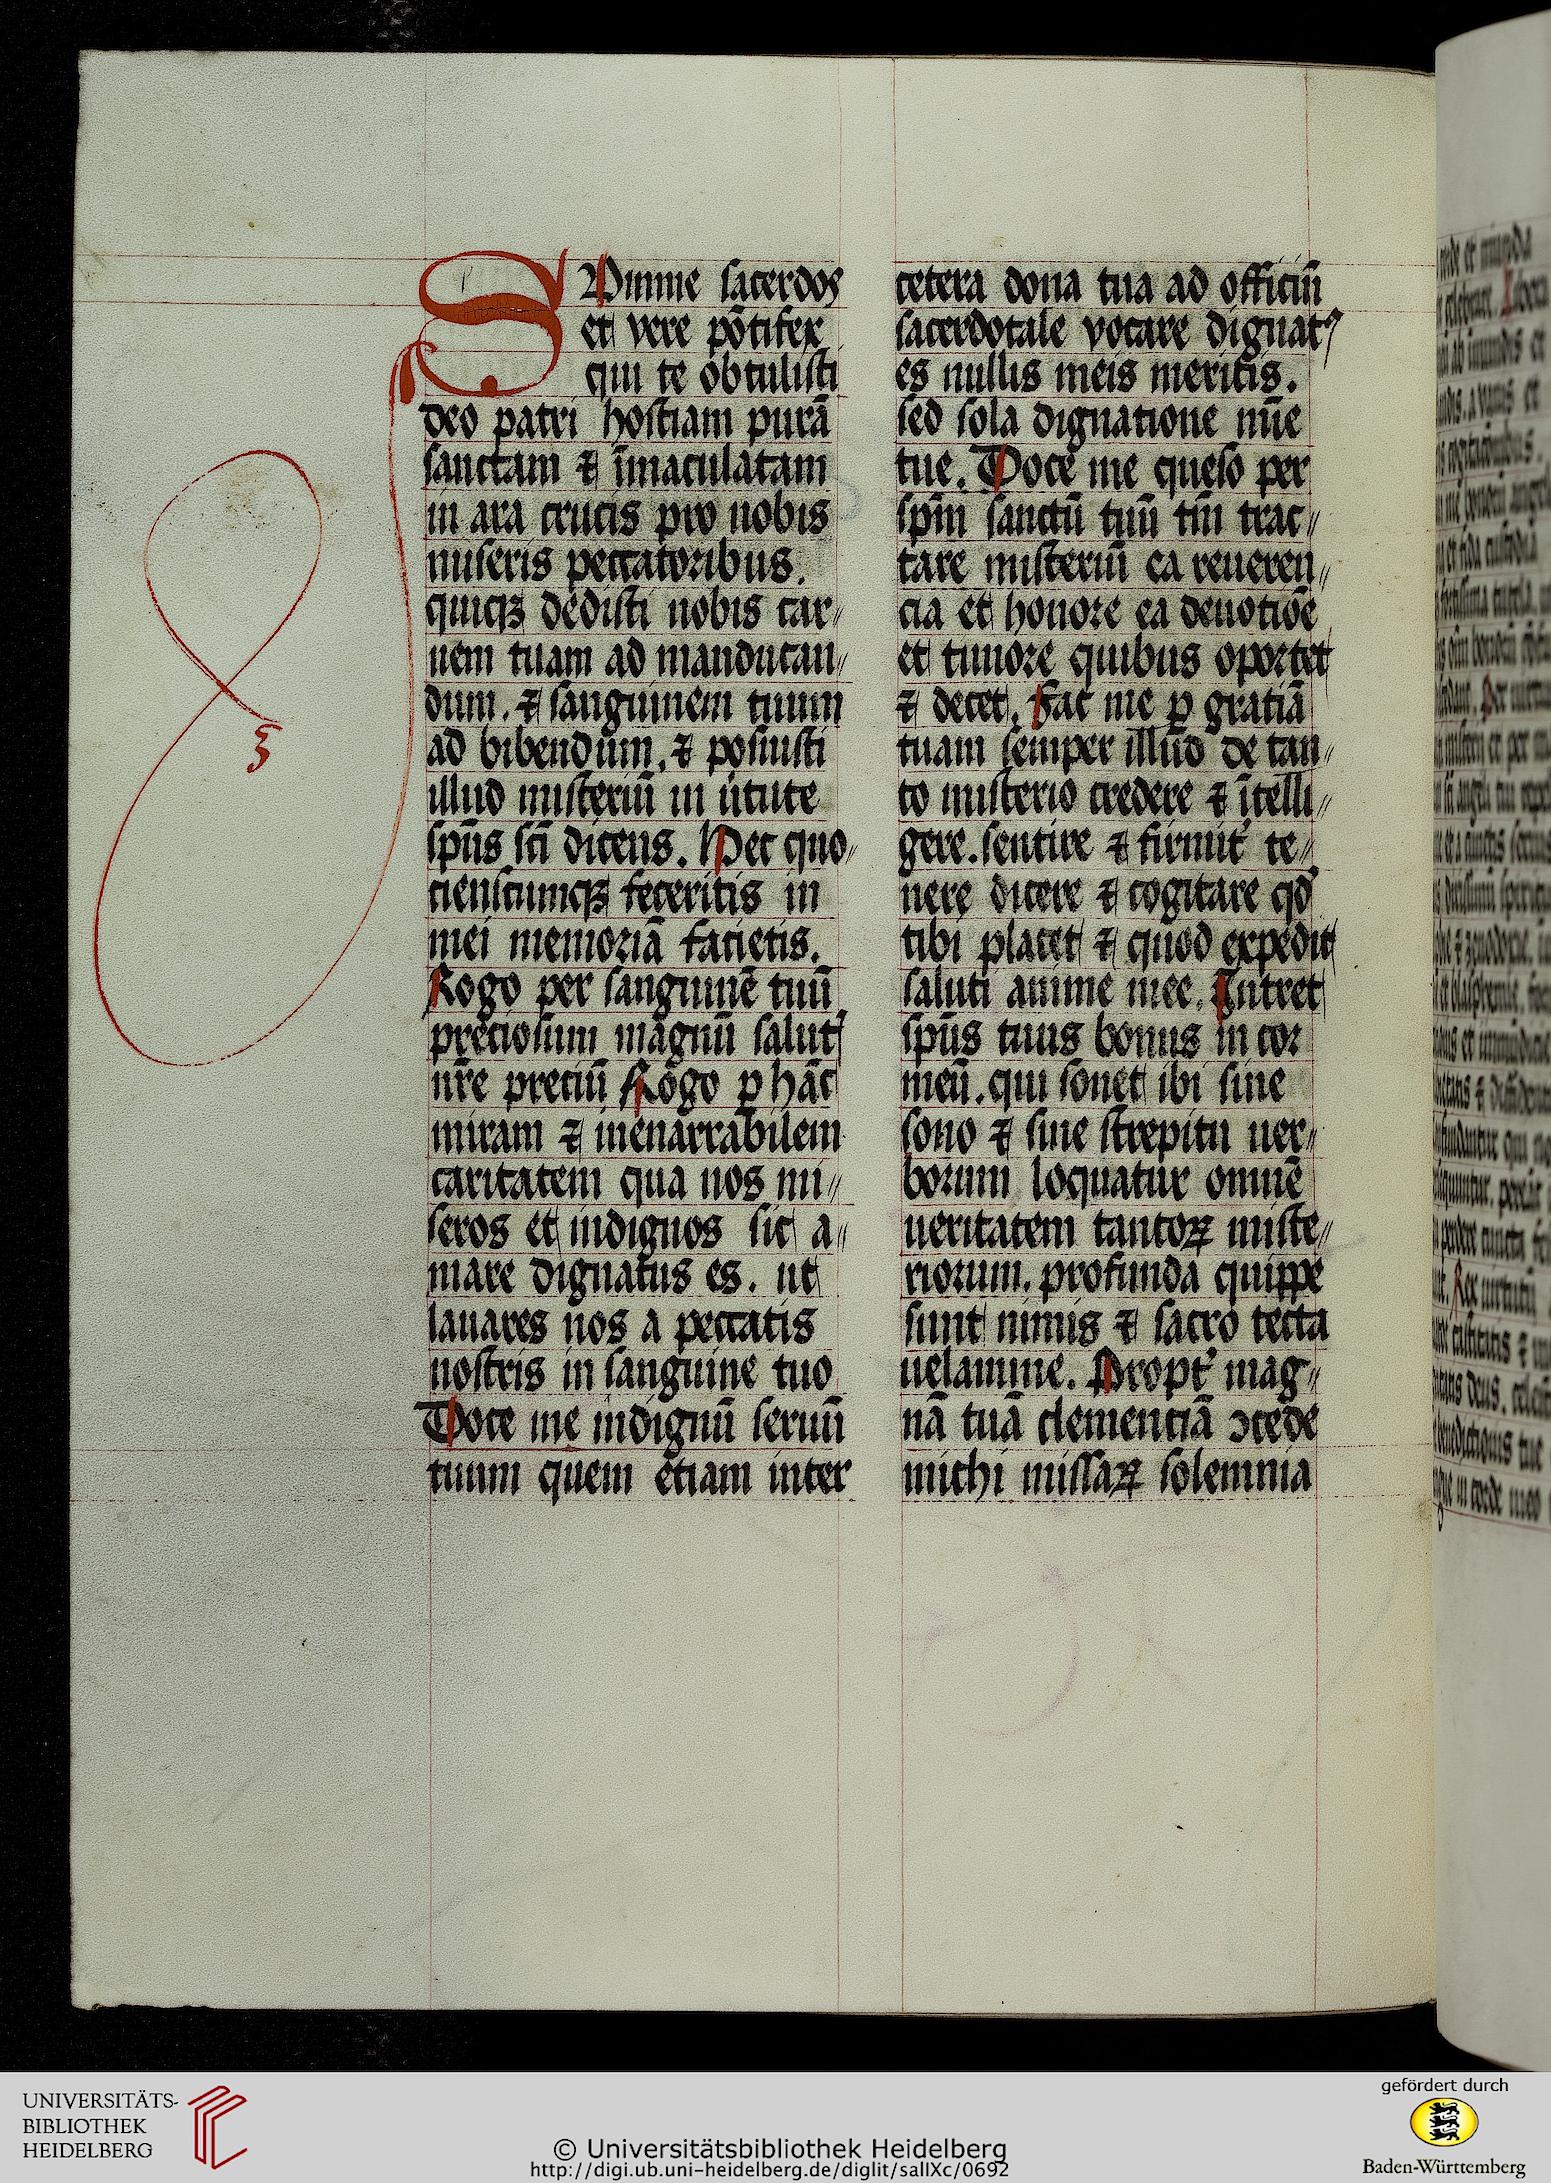 SUmme sacerdos
et vere põtifex
qui te obtulisti
deo patri hostiam purã
sanctam ⁊ ĩmaculatam
in ara crucis pro nobis
miseris peccatoribus.
quiqꝫ dedisti nobis car〃
nem tuam ad manducan〃
dum. ⁊ sanguinem tuum
ad bibendum. ⁊ posuisti
illud misteriũ in ũtute
spũs sc̃i dicens. Hec quo〃
cienscumqꝫ feceritis in
mei memoriã facietis.
Rogo per sanguinẽ tuũ
preciosum magnũ salut᷒
nr̃e preciũ Rogo ꝑ hãc
miram ⁊ inenarrabilem
caritatem qua nos mi〃
seros et indignos sic a〃
mare dignatus es. ut
lauares nos a peccatis
nostris in sanguine tuo
Doce me indignũ seruũ
tuum quem etiam inter
cetera dona tua ad officiũ
sacerdotale vocare dignat᷒
es nullis meis meritis.
sed sola dignatione mĩe
tue. Doce me queso per
spm̃ sanctũ tuũ tm̃ trac〃
tare misteriũ ea reueren〃
cia et honore ea deuotiõe
et timore quibus oportet
⁊ decet. Fac me ꝑ gratiã
tuam semper illud de tan〃
to misterio credere ⁊ ĩtelli〃
gere. sentire ⁊ firmit̾ te〃
nere dicere ⁊ cogitare qd̾
tibi placet ⁊ quod expedit
saluti anime mee. Intret
spũs tuus bonus in cor
meũ. qui sonet ibi sine
sono ⁊ sine strepitu uer〃
borum loquatur omnẽ
ueritatem tantoꝝ miste〃
riorum. profunda quippe
sunt nimis ⁊ sacro tecta
uelamine. Propt̾ mag〃
nã tuã clemenciã ↄcede
michi missaꝝ solemnia
UNIVERSITÄTS-
BIBLIOTHEK
HEIDELBERG
© Universitätsbibliothek Heidelberg
http://digi.ub.uni-heidelberg.de/diglit/salIXc/0692
gefördert durch
Baden-Württemberg